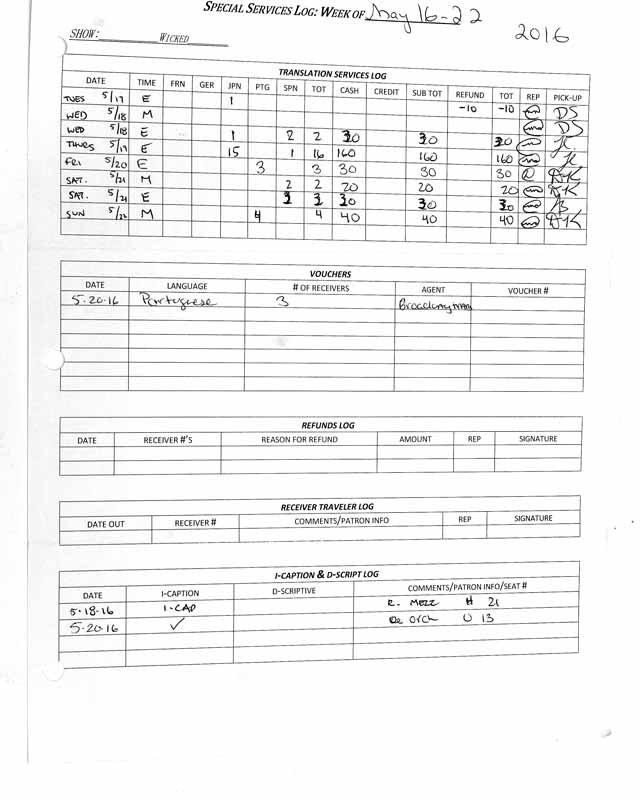 SPECIAL SERVICES LOG: WEEK OF May 16-22
2016
SHOW: WICKED
TRANSLATION SERVICES LOG
DATE TIME FRN GER JPN PTG SPN TOT CASH CREDIT SUB TOT REFUND TOT REP PICK-UP
TUES 5/17 E 1 -10 -10 DS
WED 5/18 M DS
WED 5/18 E 1 2 2 30 30 30 JL
THURS 5/19 E 15 1 16 160 160 160 JL
Fri 5/20 E 3 3 30 30 30 DK
SAT. 5/21 M 2 2 20 20 20 DK
SAT. 5/21 E 3 3 30 30 30
SUN 5/22 M 4 4 40 40 40 DK
VOUCHERS
DATE LANGUAGE # OF RECEIVERS AGENT VOUCHER #
5-20-16 Portuguese 3
REFUNDS LOG
DATE RECEIVER #'S REASON FOR REFUND AMOUNT REP SIGNATURE
RECEIVER TRAVELER LOG
DATE OUT RECEIVER # COMMENTS/PATRON INFO REP SIGNATURE
I-CAPTION & D-SCRIPT LOG
DATE I-CAPTION D-SCRIPTIVE COMMENTS/PATRON INFO/SEAT #
5-18-16 I-CAP R. Mezz H 21
5-20-16 ✓ Orch U 13